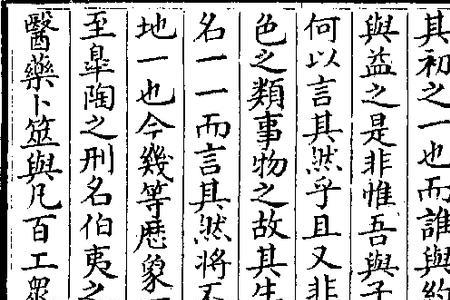 其初之一也而誰與約
與益之是非惟吾與子
何以言其然乎且又非
色之類事物之故其生
名一一而言其然將不
地一也今幾等歷象一
至皐陶之刑名伯夷之
醫藥卜筮與凡百工眾